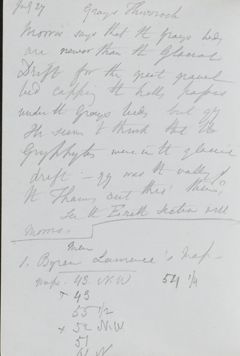 July 27 Grays Thurrock
Morris says that the Grays beds
are newer than the Glacial
Drift for the great gravel
bed capping the hills passes
under the Grays beds but qy
He seems to think that the
were in the glacial
drift - qy was the valley of
the Thames cut this
See the Erith Section with
Morris.
1. Byran Lawrence's map
maps 43 NW 54 1/4
+ 43
55 1/2
+ 52 NW
51
51 N